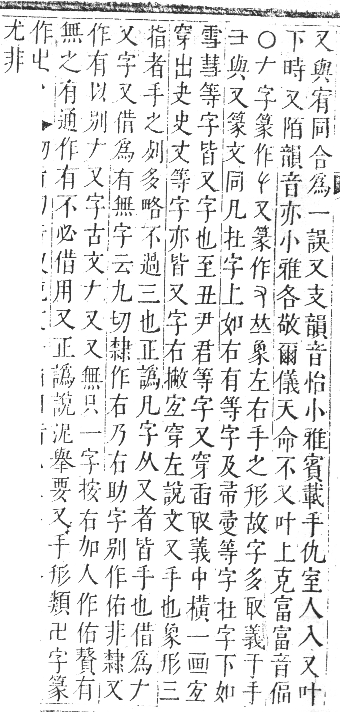 又與宥同合爲一誤又支韻音怡小雅賓載手仇室人入又叶
下時又陌韻音亦小雅各敬爾儀天命不又叶上克富富音偪
〇ナ字篆作又篆作𠀤象左右手之形故字多取義于手
彐與又篆文同凡在字上如右有等字及帚等字在字下如
雪彗等字皆又字也至丑尹君等字又穿取義中橫一画宐
穿出史丈等字亦皆又字右撇宐穿左說文又手也象形三
指者手之列多略不過三也正譌凡字从又者皆手也借爲ナ
又字又借爲有無字云九切隸作右乃右助字別作佑非隸又
作有以别ナ又字古文ナ又又無只一字按右加人作佑贅有
無之有通作有不必借用又正譌說泥舉要又手形類卍字篆
作㞢
尤非